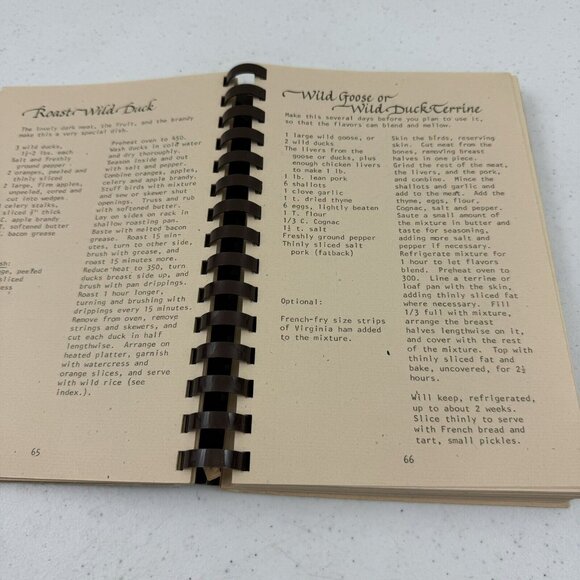 Roast Wild Duck
The lovely dark meat, the fruit, and the brandy
make this a very special dish.
3 wild ducks,
1½-2 lbs. each
Salt and freshly
ground pepper
2 oranges, peeled and
thinly sliced
2 large, firm apples,
unpeeled, cored and
cut into wedges
celery stalks,
sliced ½" thick
C. apple brandy
T. softened butter
T. bacon grease
peeled
sliced
Preheat oven to 450.
Wash ducks in cold water
and dry thoroughly.
Season inside and out
with salt and pepper.
Combine oranges, apples,
celery and apple brandy.
Stuff birds with mixture
and sew or skewer shut
openings. Truss and rub
with softened butter.
Lay on sides on rack in
shallow roasting pan.
Baste with melted bacon
grease. Roast 15 min-
utes, turn to other side,
brush with grease, and
roast 15 minutes more.
Reduce heat to 350, turn
ducks breast side up, and
brush with pan drippings.
Roast 1 hour longer,
turning and brushing with
drippings every 15 minutes.
Remove from oven, remove
strings and skewers, and
cut each duck in half
lengthwise. Arrange on
heated platter, garnish
with watercress and
orange slices, and serve
with wild rice (see
index.).
65
Wild Goose or
Wild Duck Terrine
Make this several days before you plan to use it,
so that the flavors can blend and mellow.
1 large wild goose, or
2 wild ducks
The livers from the
goose or ducks, plus
enough chicken livers
to make 1 lb.
1 lb. lean pork
6 shallots
1 clove garlic
1 t. dried thyme
6 eggs, lightly beaten
1 T. flour
1/3 C. Cognac
1½ t. salt
Freshly ground pepper
Thinly sliced salt
pork (fatback)
Optional:
French-fry size strips
of Virginia ham added
to the mixture.
Skin the birds, reserving
skin. Cut meat from the
bones, removing breast
halves in one piece.
Grind the rest of the meat,
the livers, and the pork,
and combine. Mince the
shallots and garlic and
add to the meat. Add the
thyme, eggs, flour,
Cognac, salt and pepper.
Saute a small amount of
the mixture in butter and
taste for seasoning,
adding more salt and
pepper if necessary.
Refrigerate mixture for
1 hour to let flavors
blend. Preheat oven to
300. Line a terrine or
loaf pan with the skin,
adding thinly sliced fat
where necessary. Fill
1/3 full with mixture,
arrange the breast
halves lengthwise on it,
and cover with the rest
of the mixture. Top with
thinly sliced fat and
bake, uncovered, for 2½
hours.
Will keep, refrigerated,
up to about 2 weeks.
Slice thinly to serve
with French bread and
tart, small pickles.
66